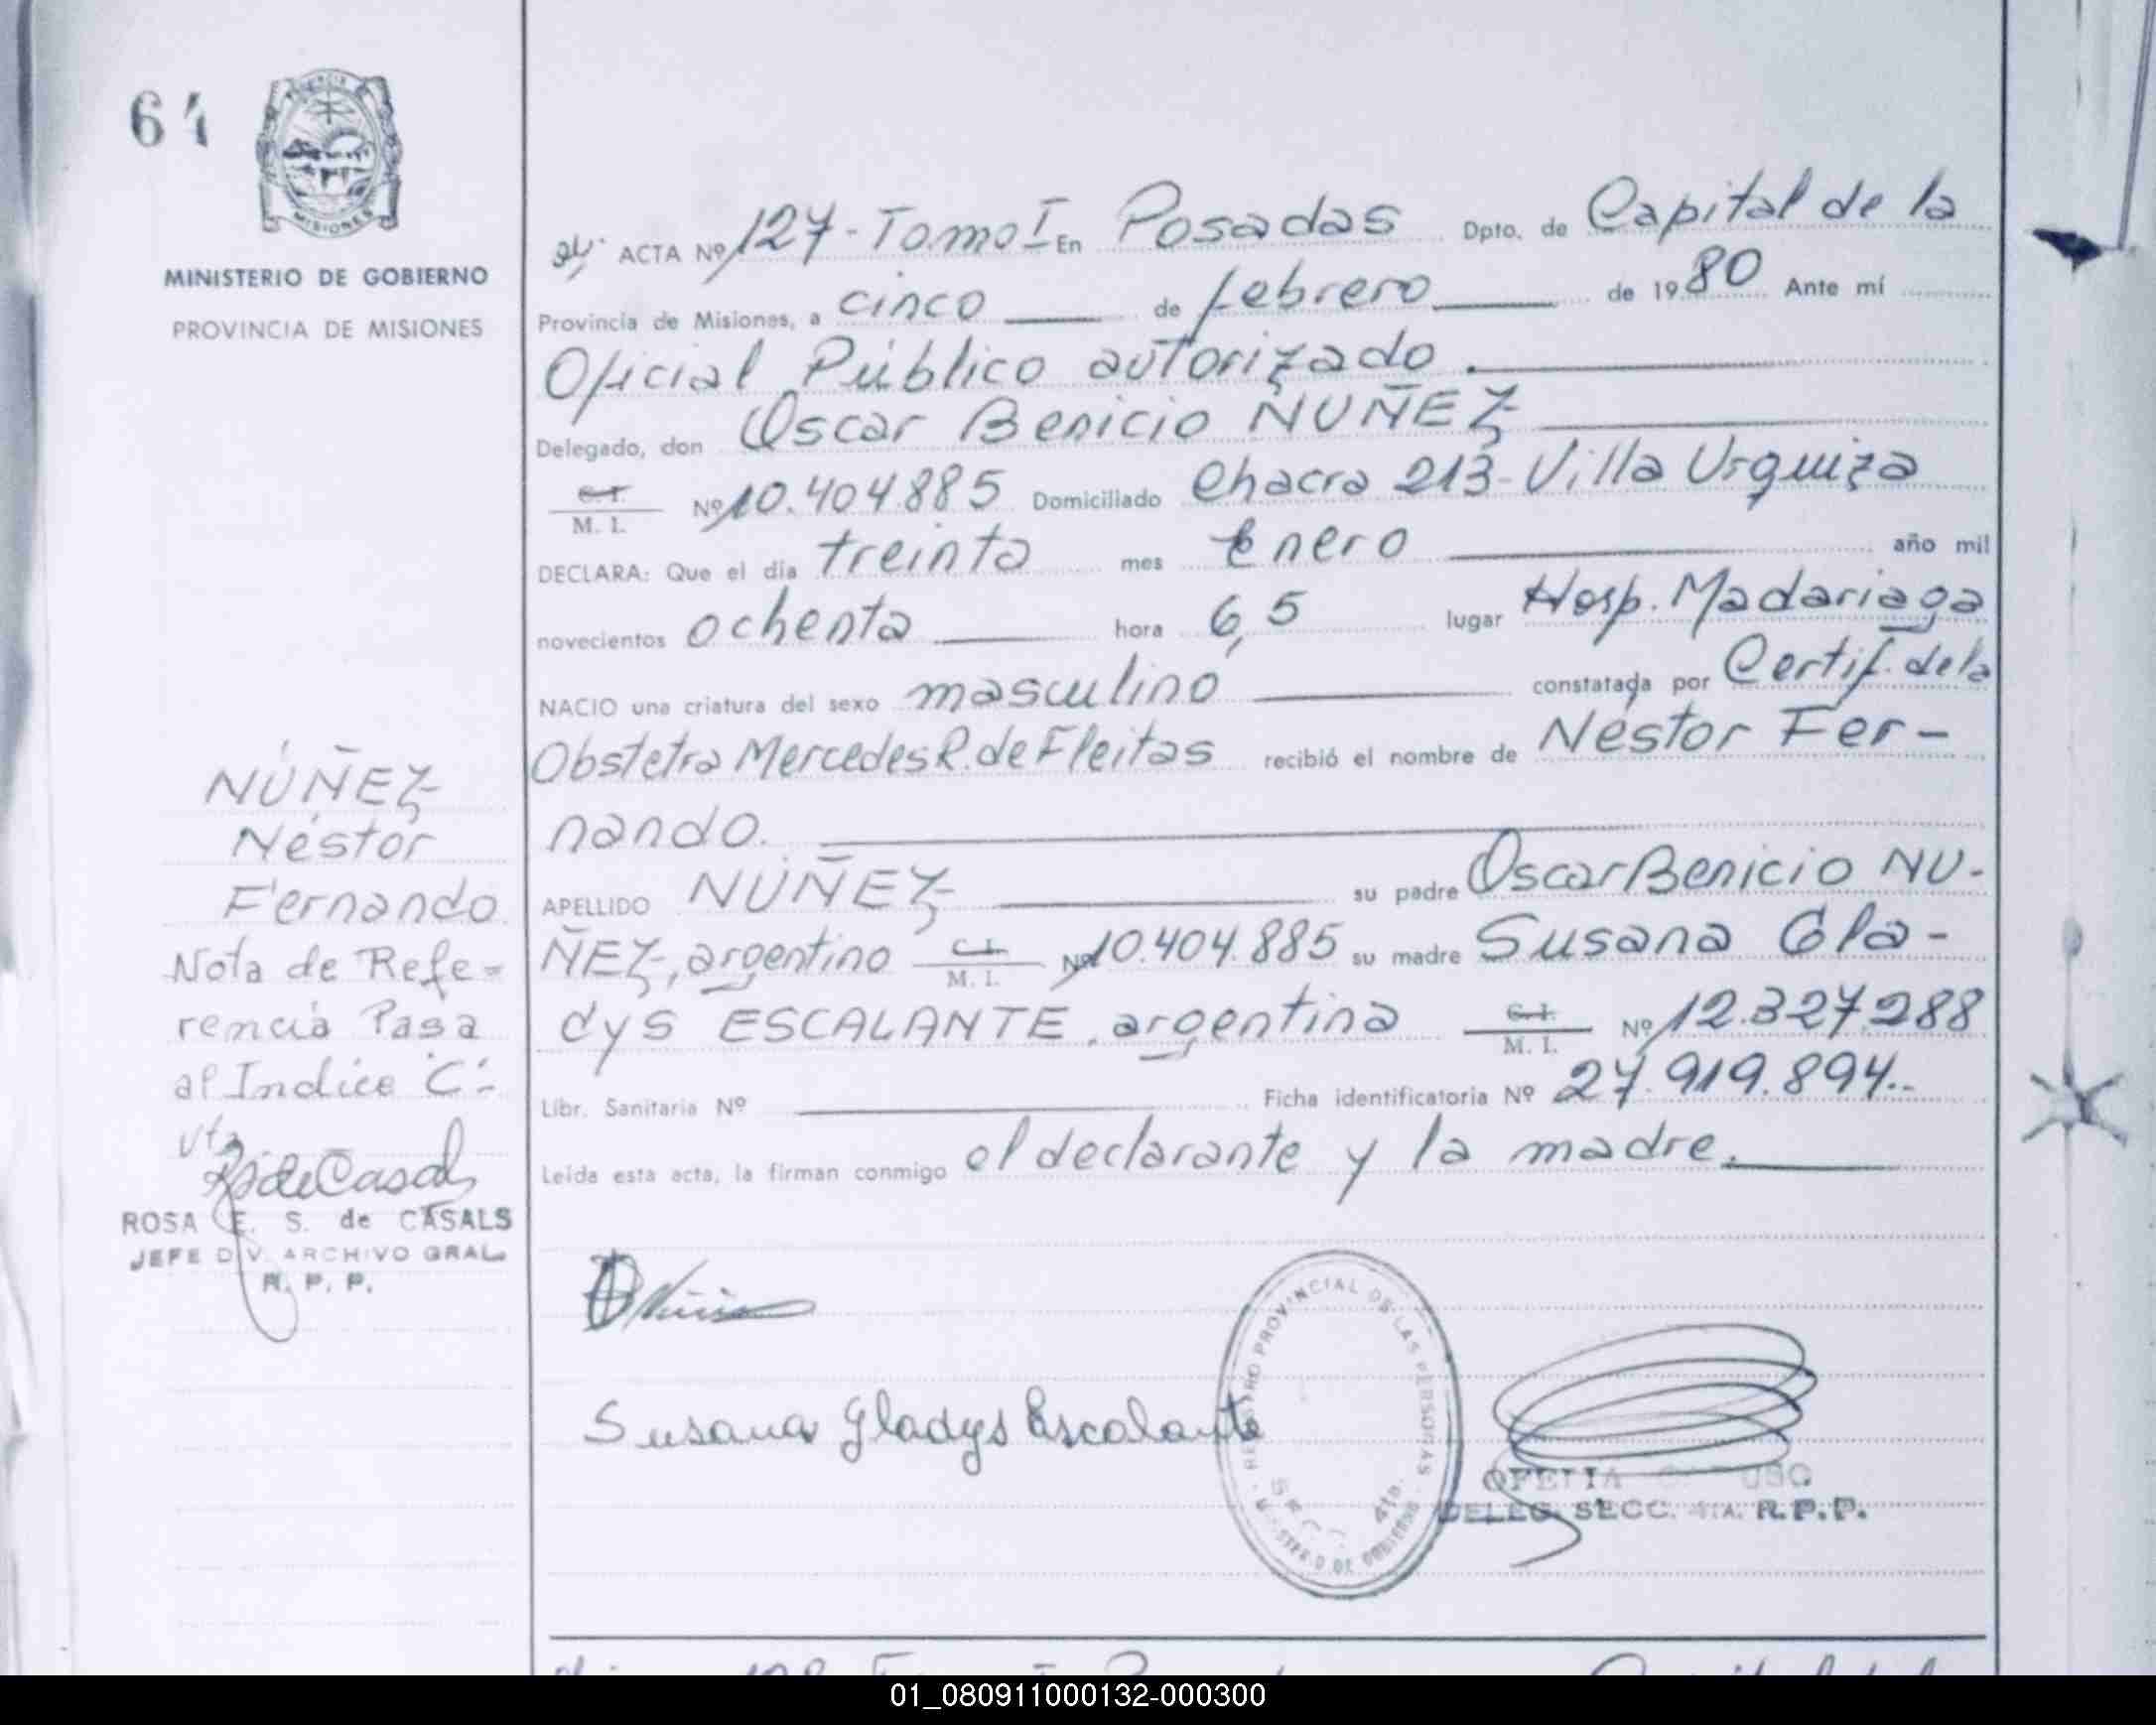 64
MISIONES
MINISTERIO DE GOBIERNO
PROVINCIA DE MISIONES
ACTA Nº 127-Tomo I En Posadas Dpto. de Capital de la
Provincia de Misiones, a cinco de febrero de 1980 Ante mí
Oficial Público autorizado.
Delegado, don Oscar Benicio NUÑEZ
C.I. M. I. Nº 10.404.885 Domiciliado Chacra 213-Villa Urquiza
DECLARA: Que el día treinta mes Enero año mil
novecientos ochenta hora 6,5 lugar Hosp. Madariaga
NACIO una criatura del sexo masculino constatada por Certif. de la
Obstetra Mercedes R. de Fleitas recibió el nombre de Néstor Fer-
nando.
APELLIDO NÚÑEZ su padre Oscar Benicio NU-
ÑEZ, argentino C.I. M. I. Nº 10.404.885 su madre Susana Gla-
dys ESCALANTE, argentina C.I. M. I. Nº 12.327.288
Libr. Sanitaria Nº Ficha identificatoria Nº 27.919.894.-
Leída esta acta, la firman conmigo el declarante y la madre.
NÚÑEZ
Néstor
Fernando
Nota de Refe=
rencia Pasa
al Indice "C"-
Vta
R de Casals
ROSA E. S. de CASALS
JEFE DIV. ARCHIVO GRAL.
R. P. P.
Susana Gladys Escalante
REGISTRO PROVINCIAL DE LAS PERSONAS
4ta.
MINISTERIO DE GOBIERNO
OFELIA
DELEG. SECC. 4TA. R.P.P.
01_080911000132-000300